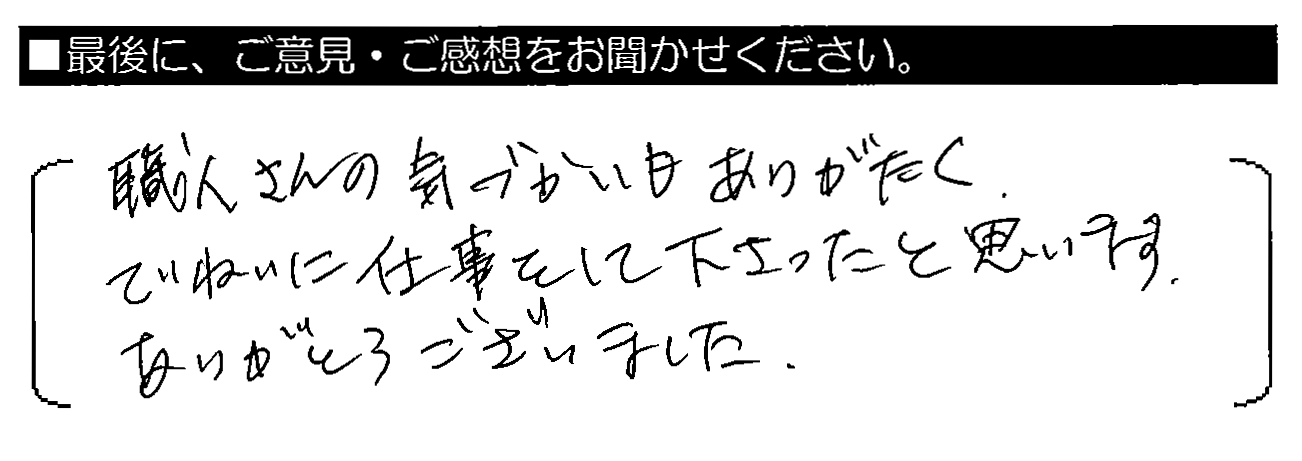 ■最後に、ご意見・ご感想をお聞かせください。
職人さんの気づかいもありがたく.
ていねいに仕事をして下さったと思います.
ありがとうございました.